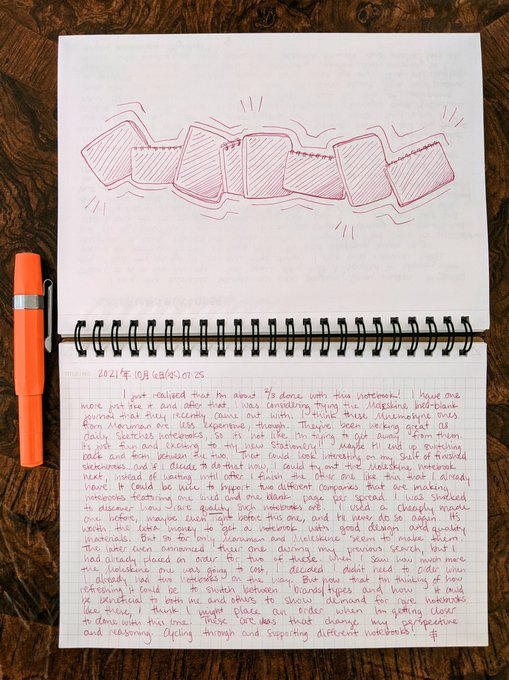 2021年10月6日(水) 07:25
I just realized that I'm about 2/3 done with this notebook! I have one
more just like it and after that, I was considering trying the Moleskine lined-blank
journal that they recently came out with. I think these Mnemosyne ones
from Maruman are less expensive, though. They've been working great as
daily sketches notebooks, so it's not like I'm trying to get away from them.
It's just fun and exciting to try new stationery! I maybe I'll end up switching
back and forth between the two. That could look interesting on my shelf of finished
sketchbooks and if I decide to do that now, I could try out the Moleskine notebook
next, instead of waiting until after I finish the other one like this that I already
have. It could be nice to support two different companies that are making
notebooks featuring one lined and one blank page per spread. I was shocked
to discover how rare quality such notebooks are. I used a cheaply made
one before, maybe even right before this one, and I'll never do so again. It's
worth the extra money to get a notebook with good design and quality
materials. But so far only Maruman and Moleskine seem to make them.
The latter even announced their one during my previous search, but I
had already placed an order for two of these. When I saw how much more
the Moleskine one was going to cost, I decided I didn't need to order when
I already had two notebooks on the way. But now that I'm thinking of how
refreshing it could be to switch between brands/types and how it could
be beneficial to both me and others to show demand for rare notebooks
like these, I think I might place an order when I'm getting closer
to done with this one. These are that change my perspective
and reasoning. Cycling through and supporting different notebooks!